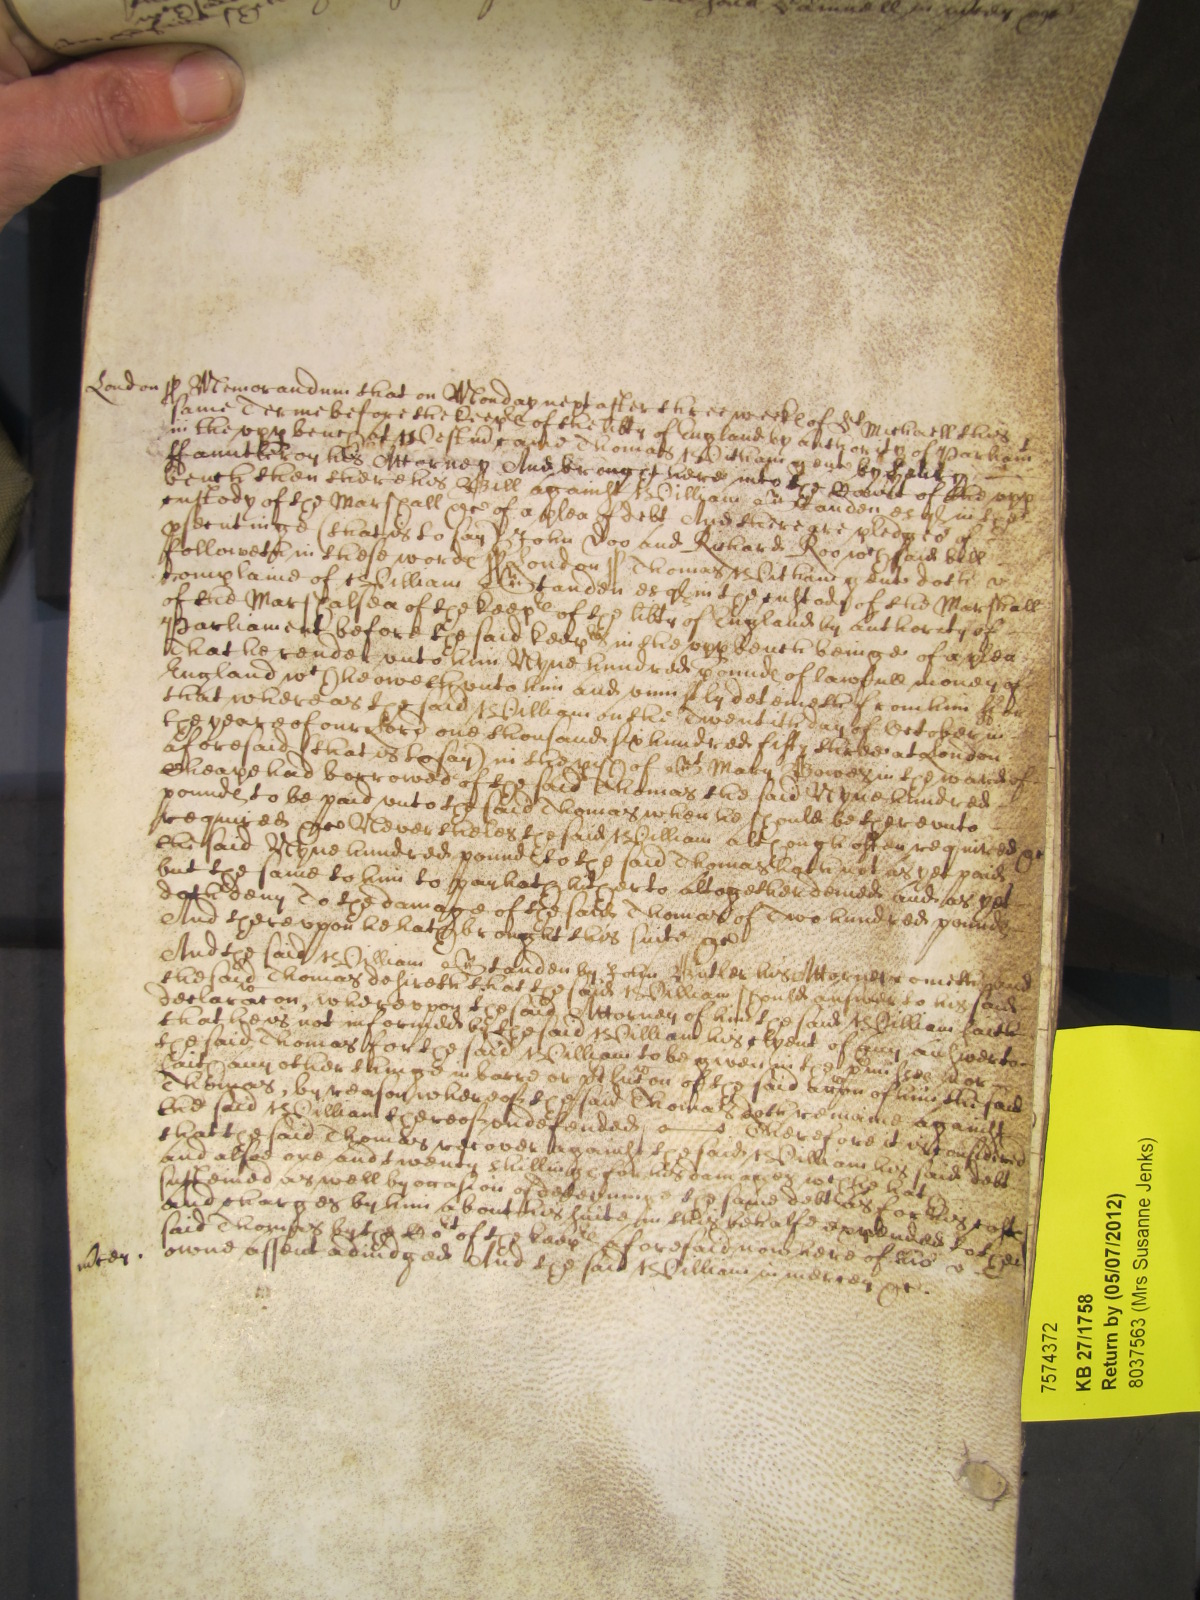 London ss Memorandum that on Monday next after three weekes of St Michaell this
same Terme before the keeps of the libty of England by authority of Parliamt
in the upp bench at Westm came Thomas Witham gent by
his Attorney And brought here into the Court of the upp
bench then there his Bill against William Standen esqr in the
custody of the Marshall &c of a plea of debt And there are pledges of
psentinge (that is to say) John Doo and Richard Roo wch said bill
followeth in these words ss London ss Thomas Witham gent doth
complaine of William Standen esqr in the custody of the Marshall
of the Marshalsea of the keeps of the libty of England by authority of
Parliament before the said keeps in the upp bench beinge of a plea
that he render unto him Nyne hundred pounds of lawfull money of
England wch he oweth unto him and uniustly deteineth from him For
that whereas the said William on the Twentith day of October in
the yeare of our Lord one thousand six hundred fifty three at London
aforesaid (that is to say) in the pish of St Mary Bowe in the ward of
Cheape had borrowed of the said Thomas the said Nyne hundred
pounds to be paid unto the said Thomas when he should be thereunto
required &c Neverthelesse the said William although often required &c
the said Nyne hundred pounds to the said Thomas hath not as yet paid
but the same to him to pay hath hitherto altogether denied and as yet
doth deny To the damage of the said Thomas of Two hundred pounds
And thereupon he hath brought this suite &c
And the said William Standen by John Butler his Attorney cometh and
the said Thomas desireth that the said William should answer to his said
declaracon, whereupon the said Attorney of him the said William saith
that he is not informed by the said William his clyent of any answer to
the said Thomas for the said William to be given in the pmisses Nor
saith any other thinge in barre or of the said accon of him the said
Thomas, by reason whereof the said Thomas doth remaine against
the said William thereof undefended Therefore it is considered
that the said Thomas recover against the said William his said debt
and alsoe one and twenty shillings for his damages wch he hath
susteined as well by occasion of deteininge the same debt as for his costs
and charges by him about his suite in this behalfe expended to the
said Thomas by the Cort of the keeps aforesaid now here of his
mercy. owne assent adiudged And the said William in mercy &c.
7574372
KB 27/1758
Return by (05/07/2012)
8037563 (Mrs Susanne Jenks)